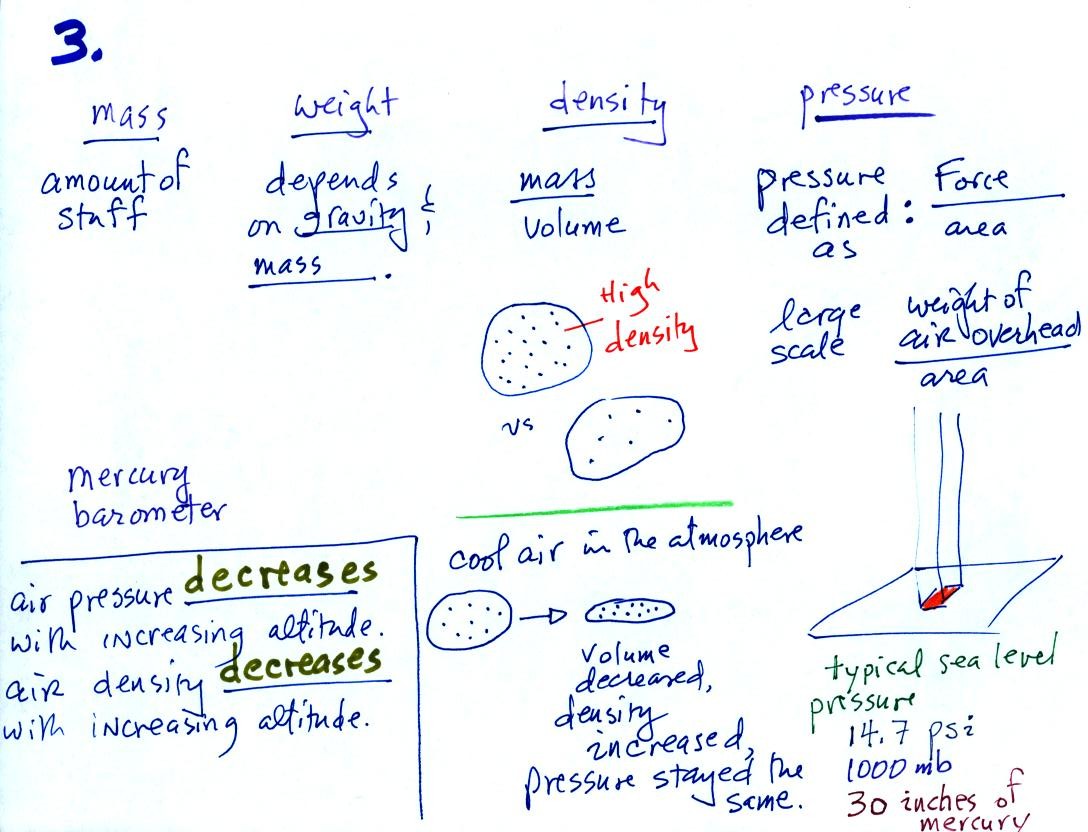 3.
mass
amount of
stuff
weight
depends
on gravity &
mass .
density
mass
volume
High
density
vs
pressure
pressure
defined :
as
Force
area
large
scale
weight of
air overhead
area
mercury
barometer
air pressure decreases
with increasing altitude.
air density decreases
with increasing altitude.
cool air in the atmosphere
volume
decreased,
density
increased,
pressure stayed the
same.
typical sea level
pressure
14.7 psi
1000 mb
30 inches of
mercury